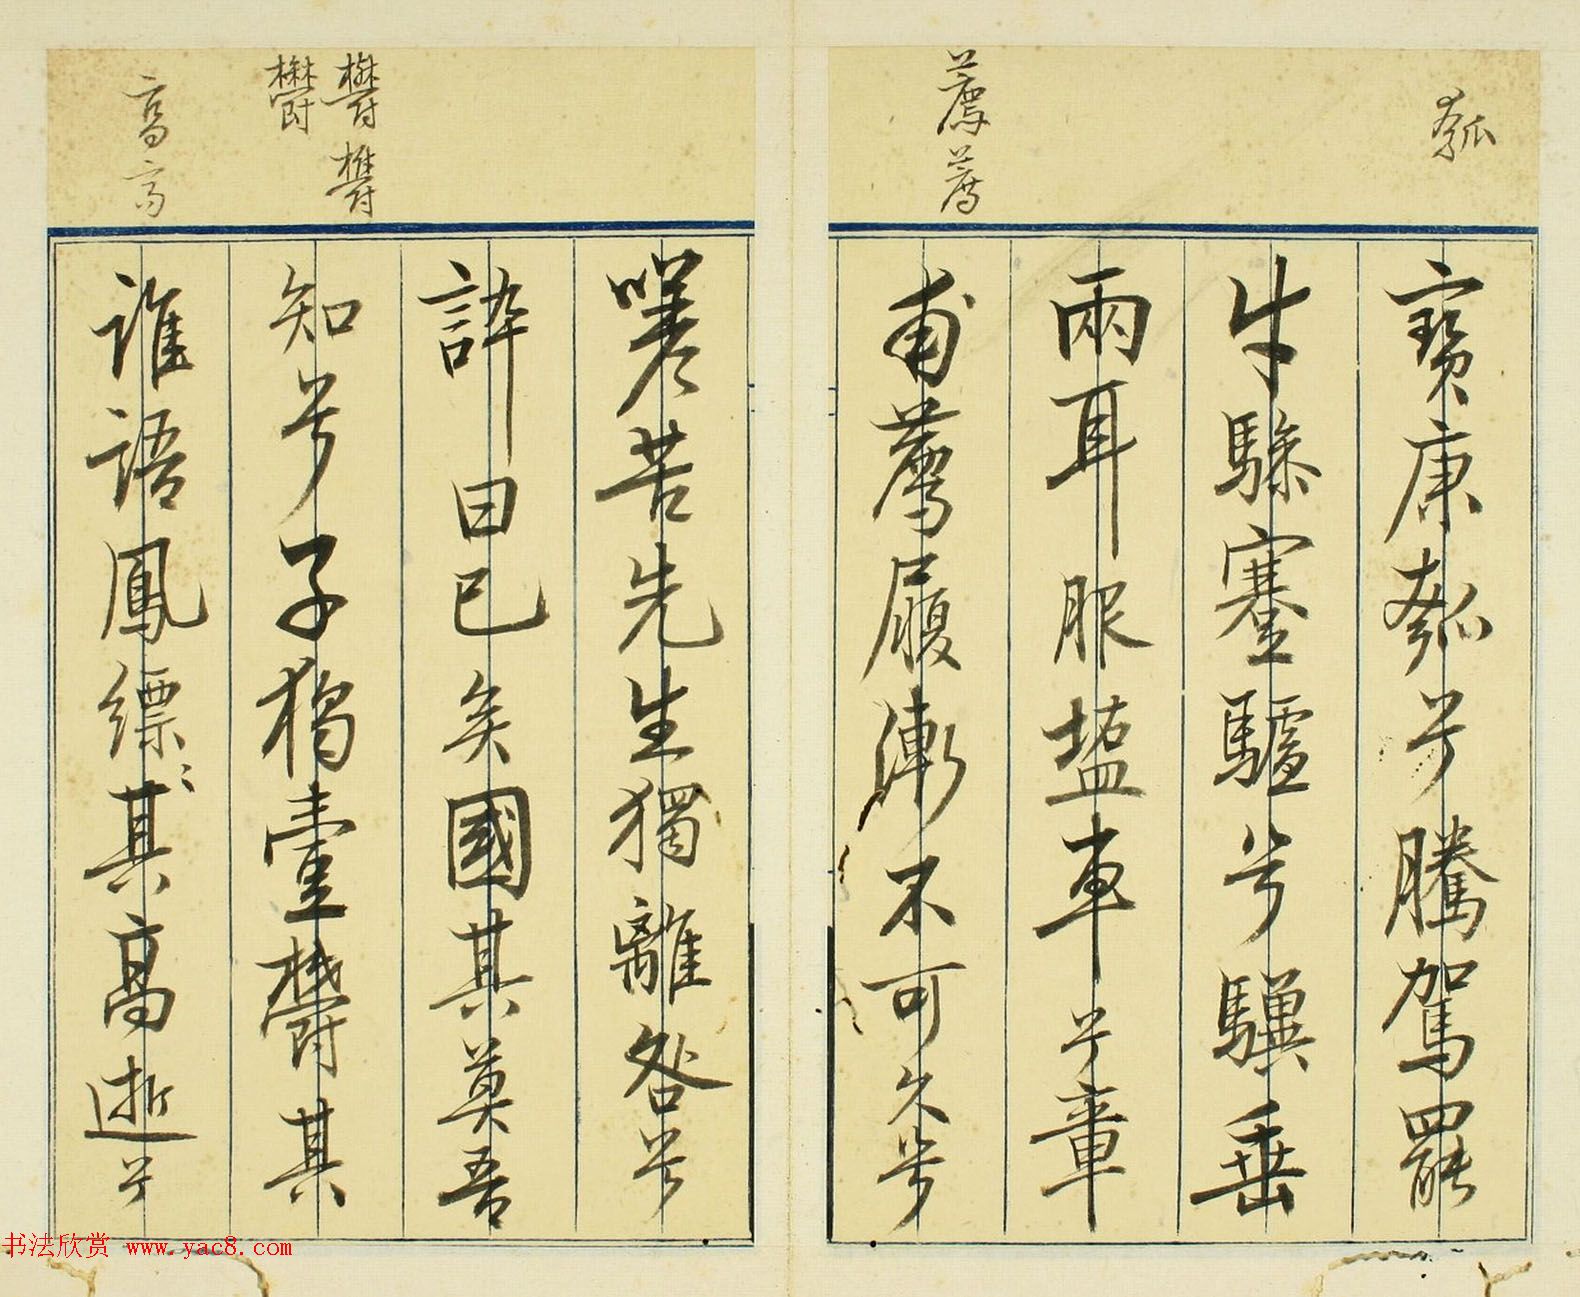 瓠
薦薦
寶康瓠兮騰駕罷
牛驂蹇驢兮驥垂
兩耳服塩車兮章
甫薦履漸不可久兮
嗟苦先生獨離咎兮
誶曰已矣國其莫吾
知兮子獨壹鬱其
誰語鳳縹〻其高逝兮
鬱鬱
鬱
高高
书法欣赏 www.yac8.com